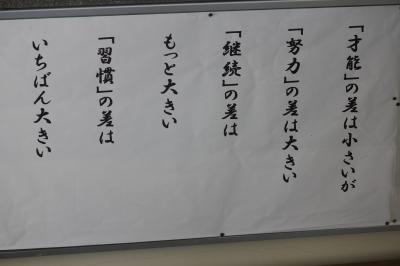 「才能」の差は小さいが
「努力」の差は大きい
「継続」の差は
もっと大きい
「習慣」の差は
いちばん大きい